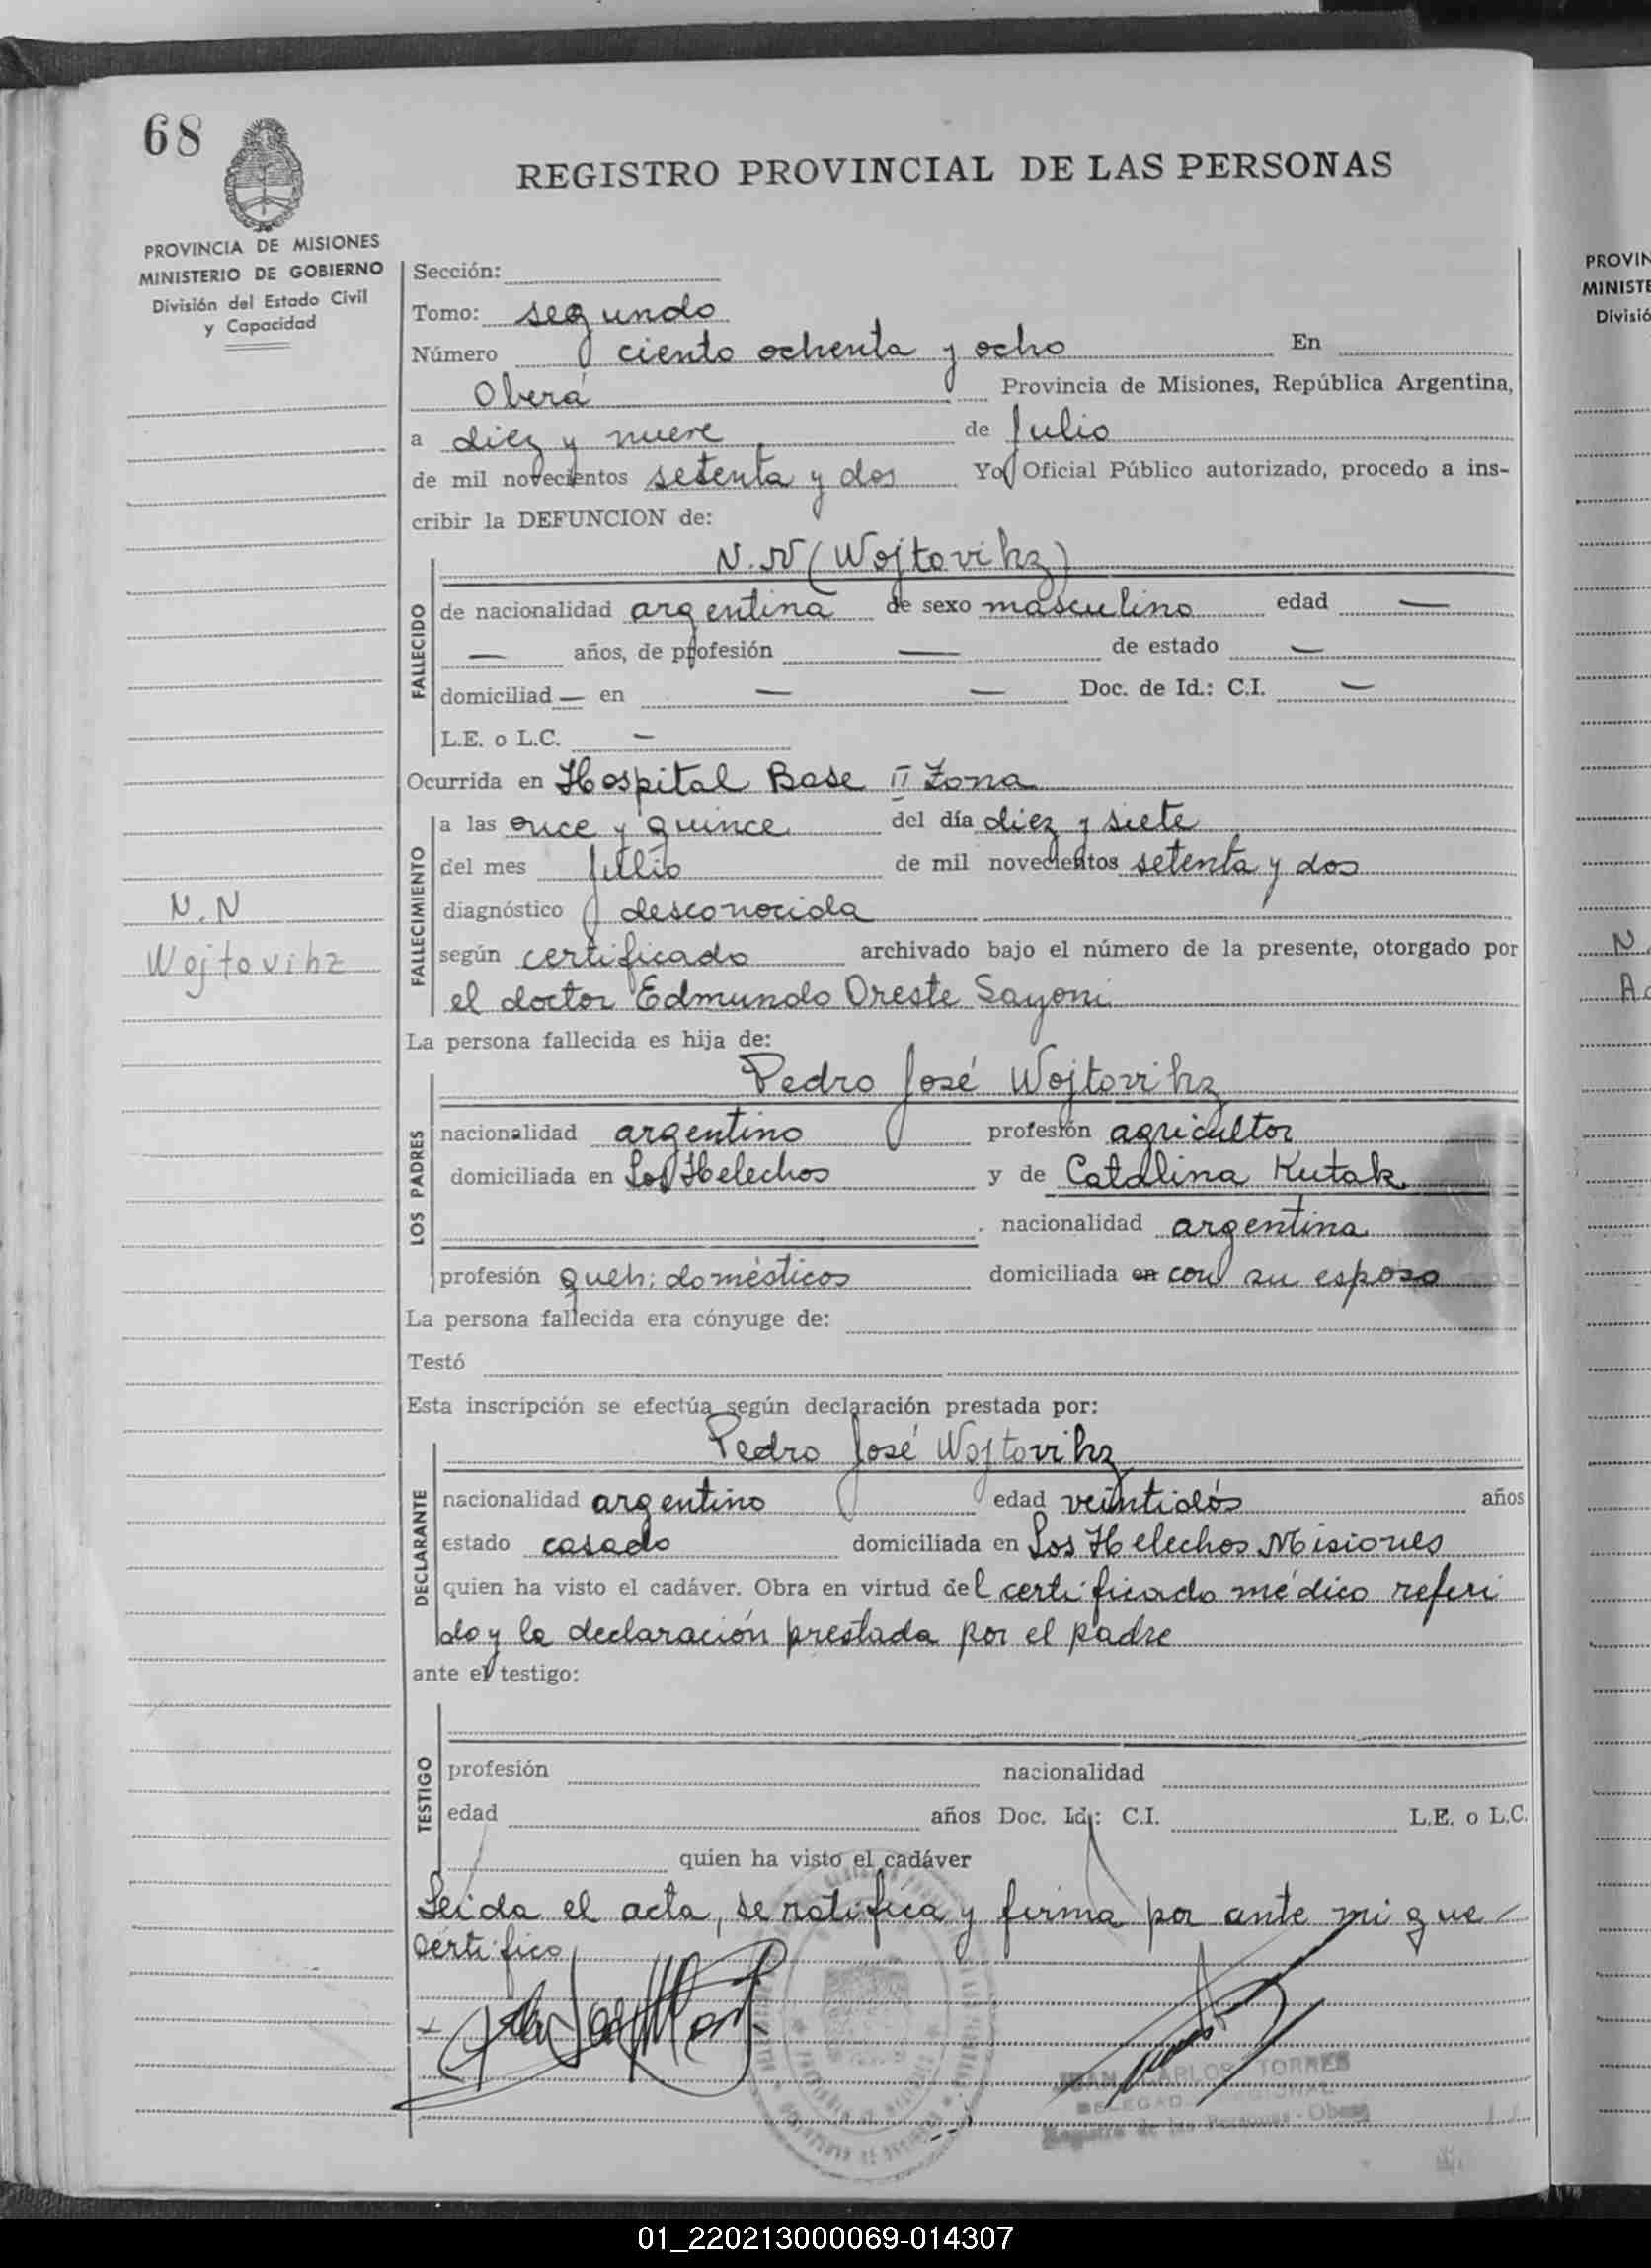 68
REGISTRO PROVINCIAL DE LAS PERSONAS
PROVINCIA DE MISIONES
MINISTERIO DE GOBIERNO
División del Estado Civil
y Capacidad
Sección:
Tomo: segundo
Número ciento ochenta y ocho En
Oberá Provincia de Misiones, República Argentina,
a diez y nueve de Julio
de mil novecientos setenta y dos Yo, Oficial Público autorizado, procedo a ins-
cribir la DEFUNCION de:
N.N (Wojtovihz)
FALLECIDO
de nacionalidad argentina de sexo masculino edad —
— años, de profesión — de estado —
domiciliad — en — — Doc. de Id.: C.I. —
L.E. o L.C. —
Ocurrida en Hospital Base II Zona
FALLECIMIENTO
a las once y quince del día diez y siete
del mes Julio de mil novecientos setenta y dos
N.N
diagnóstico desconocida
Wojtovihz
según certificado archivado bajo el número de la presente, otorgado por
el doctor Edmundo Oreste Sayoni
La persona fallecida es hija de:
Pedro José Wojtovihz
LOS PADRES
nacionalidad argentino profesión agricultor
domiciliada en Los Helechos y de Catalina Kutak
nacionalidad argentina
profesión queh; domésticos domiciliada en con su esposo
La persona fallecida era cónyuge de:
Testó
Esta inscripción se efectúa según declaración prestada por:
Pedro José Wojtovihz
DECLARANTE
nacionalidad argentino edad veintidós años
estado casado domiciliada en Los Helechos Misiones
quien ha visto el cadáver. Obra en virtud del certificado médico referi
do y la declaración prestada por el padre
ante el testigo:
TESTIGO
profesión nacionalidad
edad años Doc. Id.: C.I. L.E. o L.C.
quien ha visto el cadáver
Leida el acta, se ratifica y firma por ante mi que
certifico
JUAN CARLOS TORRES
Registro de las Personas - Oberá
PROVIN
MINISTE
Divisió
N.
A
01_220213000069-014307